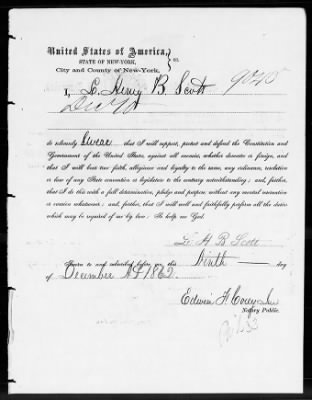 United States of America,
STATE OF NEW-YORK, ss.
City and County of New-York,
I, L. Henry B. Scott 9045
do solemnly Swear that I will support, protect and defend the Constitution and
Government of the United States, against all enemies, whether domestic or foreign, and
that I will bear true faith, allegiance and loyalty to the same, any ordinance, resolution
or law of any State convention or legislature to the contrary notwithstanding; and, further,
that I do this with a full determination, pledge and purpose, without any mental reservation
or evasion whatsoever; and, further, that I will well and faithfully perform all the duties
which may be required of me by law: So help me God.
H B Scott
Sworn to and subscribed before this Ninth day
of December 1862
Edwin F. Corey
Notary Public.